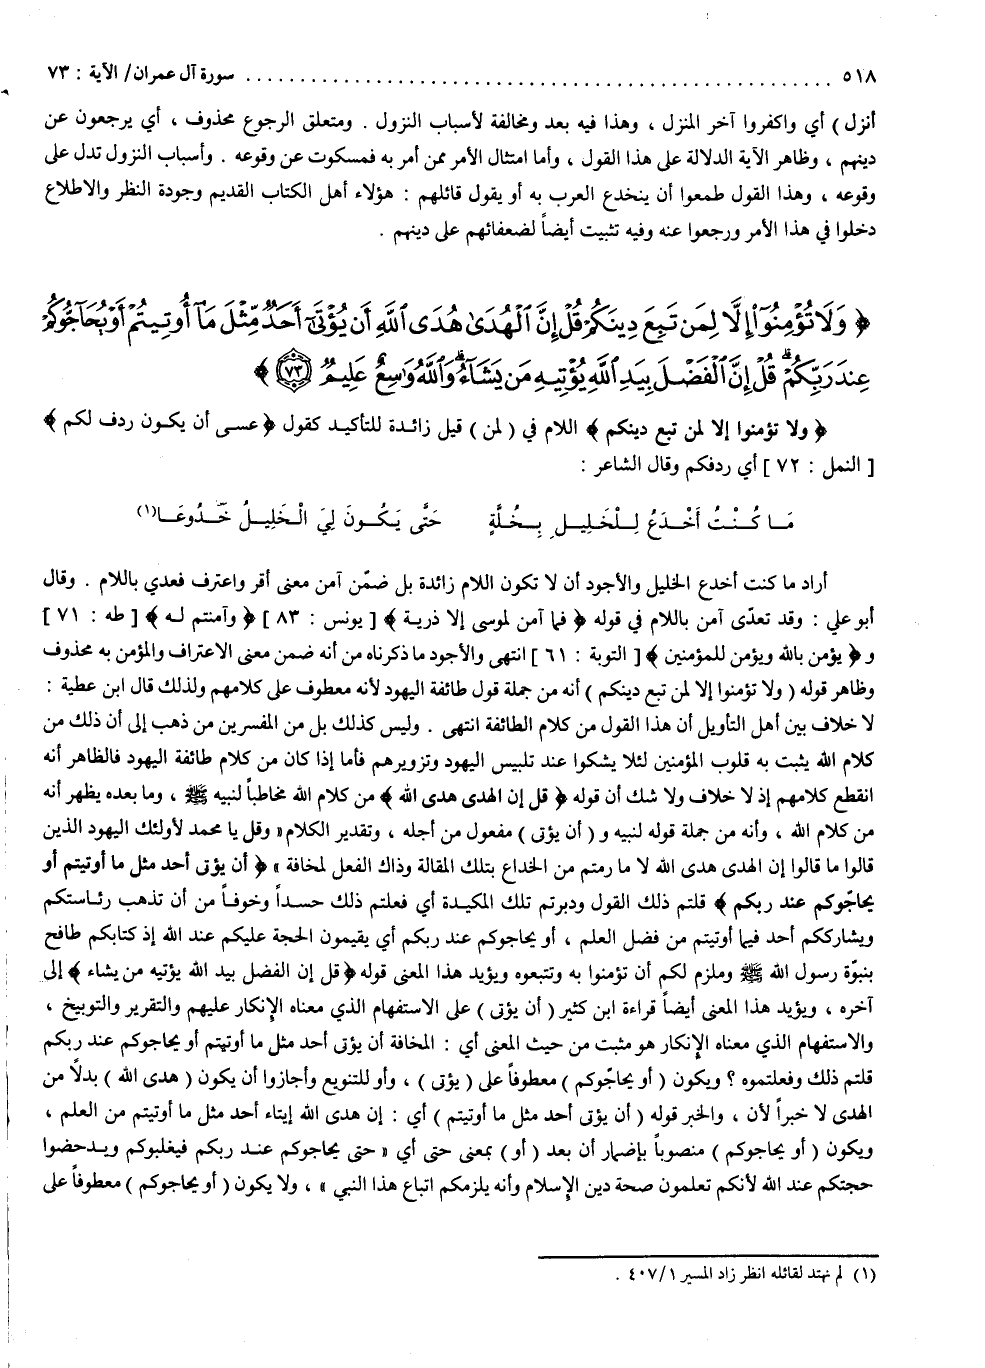 ٥١٨ ........................................................ سورة آل عمران/ الآية : ٧٣
أنزل ) أي واكفروا آخر المنزل ، وهذا فيه بعد ومخالفة لأسباب النزول . ومتعلق الرجوع محذوف ، أي يرجعون عن
دينهم ، وظاهر الآية الدلالة على هذا القول ، وأما امتثال الأمر ممن أمر به فمسكوت عن وقوعه . وأسباب النزول تدل على
وقوعه ، وهذا القول طمعوا أن ينخدع العرب به أو يقول قائلهم : هؤلاء أهل الكتاب القديم وجودة النظر والاطلاع
دخلوا في هذا الأمر ورجعوا عنه وفيه تثبيت أيضاً لضعفائهم على دينهم .
﴿ وَلَا تُؤْمِنُوٓا۟ إِلَّا لِمَن تَبِعَ دِينَكُمْ قُلْ إِنَّ ٱلْهُدَىٰ هُدَى ٱللَّهِ أَن يُؤْتَىٰٓ أَحَدٌ مِّثْلَ مَآ أُوتِيتُمْ أَوْ يُحَآجُّوكُمْ
عِندَ رَبِّكُمْ ۗ قُلْ إِنَّ ٱلْفَضْلَ بِيَدِ ٱللَّهِ يُؤْتِيهِ مَن يَشَآءُ ۗ وَٱللَّهُ وَٰسِعٌ عَلِيمٌ ٧٣ ﴾
﴿ ولا تؤمنوا إلا لمن تبع دينكم ﴾ اللام في ( لمن ) قيل زائدة للتأكيد كقول ﴿ عسى أن يكون ردف لكم ﴾
[ النمل : ٧٢ ] أي ردفكم وقال الشاعر :
مَا كُنْتُ أَخْدَعُ لِلْخَلِيلِ بِخُلَّةٍ حَتَّى يَكُونَ لِيَ الْخَلِيلُ خَدُوعَا(١)
أراد ما كنت أخدع الخليل والأجود أن لا تكون اللام زائدة بل ضمّن آمن معنى أقر واعترف فعدي باللام . وقال
أبو علي : وقد تعدّى آمن باللام في قوله ﴿ فما آمن لموسى إلا ذرية ﴾ [ يونس : ٨٣ ] ﴿ وآمنتم له ﴾ [ طه : ٧١ ]
و ﴿ يؤمن بالله ويؤمن للمؤمنين ﴾ [ التوبة : ٦١ ] انتهى والأجود ما ذكرناه من أنه ضمن معنى الاعتراف والمؤمن به محذوف
وظاهر قوله ( ولا تؤمنوا إلا لمن تبع دينكم ) أنه من جملة قول طائفة اليهود لأنه معطوف على كلامهم ولذلك قال ابن عطية :
لا خلاف بين أهل التأويل أن هذا القول من كلام الطائفة انتهى . وليس كذلك بل من المفسرين من ذهب إلى أن ذلك من
كلام الله يثبت به قلوب المؤمنين لئلا يشكوا عند تلبيس اليهود وتزويرهم فأما إذا كان من كلام طائفة اليهود فالظاهر أنه
انقطع كلامهم إذ لا خلاف ولا شك أن قوله ﴿ قل إن الهدى هدى الله ﴾ من كلام الله مخاطباً لنبيه ﷺ ، وما بعده يظهر أنه
من كلام الله ، وأنه من جملة قوله لنبيه و ( أن يؤتى ) مفعول من أجله ، وتقدير الكلام « وقل يا محمد لأولئك اليهود الذين
قالوا ما قالوا إن الهدى هدى الله لا ما رمتم من الخداع بتلك المقالة وذاك الفعل لمخافة » ﴿ أن يؤتى أحد مثل ما أوتيتم أو
يحاجّوكم عند ربكم ﴾ قلتم ذلك القول ودبرتم تلك المكيدة أي فعلتم ذلك حسداً وخوفاً من أن تذهب رئاستكم
ويشارككم أحد فيما أوتيتم من فضل العلم ، أو يحاجوكم عند ربكم أي يقيمون الحجة عليكم عند الله إذ كتابكم طافح
بنبوّة رسول الله ﷺ وملزم لكم أن تؤمنوا به وتتبعوه ويؤيد هذا المعنى قوله ﴿ قل إن الفضل بيد الله يؤتيه من يشاء ﴾ إلى
آخره ، ويؤيد هذا المعنى أيضاً قراءة ابن كثير ( أن يؤتى ) على الاستفهام الذي معناه الإنكار عليهم والتقرير والتوبيخ ،
والاستفهام الذي معناه الإنكار هو مثبت من حيث المعنى أي : المخافة أن يؤتى أحد مثل ما أوتيتم أو يحاجوكم عند ربكم
قلتم ذلك وفعلتموه ؟ ويكون ( أو يحاجّوكم ) معطوفاً على ( يؤتى ) ، وأو للتنويع وأجازوا أن يكون ( هدى الله ) بدلاً من
الهدى لا خبراً لأن ، والخبر قوله ( أن يؤتى أحد مثل ما أوتيتم ) أي : إن هدى الله إيتاء أحد مثل ما أوتيتم من العلم ،
ويكون ( أو يحاجوكم ) منصوباً بإضمار أن بعد ( أو ) بمعنى حتى أي « حتى يحاجوكم عند ربكم فيغلبوكم ويدحضوا
حجتكم عند الله لأنكم تعلمون صحة دين الإسلام وأنه يلزمكم اتباع هذا النبي » ، ولا يكون ( أو يحاجوكم ) معطوفاً على
(١) لم نهتد لقائله انظر زاد المسير ٤٠٧/١ .